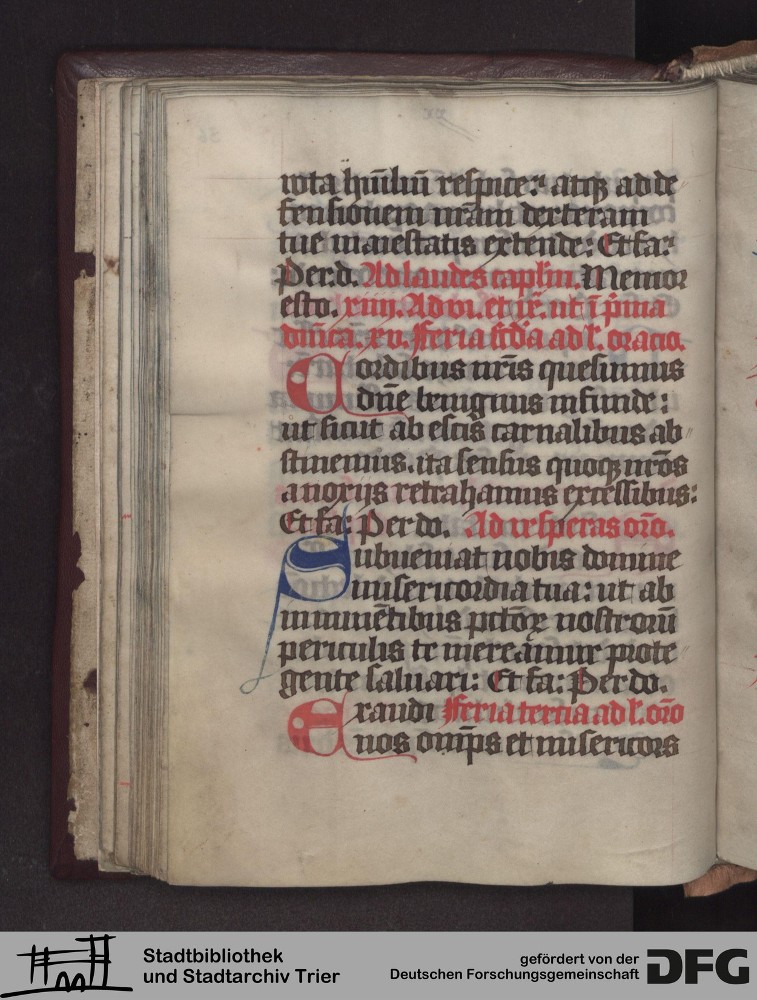 uota hu͞iliu͞ respice: atqꝫ ad de
fensionem nr͞am dexteram
tue maiestatis extende: Et fa:
Per.d. Ad laudes capl͞m. Memor
esto. xiiij. Ad vi. et ix͞. ut i͞ p͞ma
d͞nica. xv. Feria sc͞da ad l͞. oracio.
Cordibus nr͞is quesumus
dn͞e benignus infunde:
ut sicut ab escis carnalibus ab
stinemus. ita sensus quoqꝫ nr͞os
a noxijs retrahamus excessibus:
Et fa: Per do. Ad vesperas or͞o.
Subueniat nobis domine
misericordia tua: ut ab
immine͞tibus pcto͞ꝝ nostroru͞
periculis te mereamur prote
gente saluari: Et fa: Per do.
Exaudi Feria tertia ad l͞. or͞o
nos om͞ps et misericors
Stadtbibliothek
und Stadtarchiv Trier
gefördert von der
Deutschen Forschungsgemeinschaft
DFG